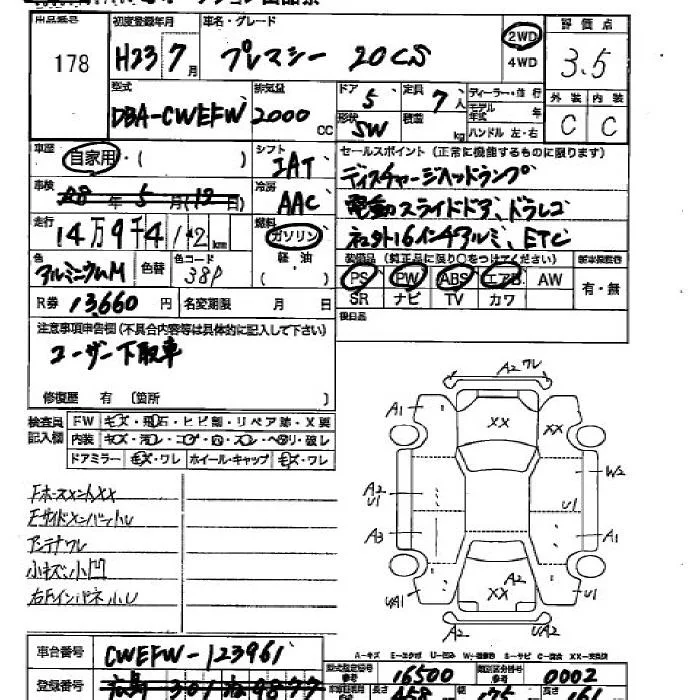 出品番号 初度登録年月 車名・グレード 2WD 4WD 評価点
178 H23 7月 プレマシー 20CS 3.5
型式 排気量 ドア 定員 ディーラー・並行
DBA-CWEFW 2000cc 5 7人 モデル年式 年
形状 積載 ハンドル 左・右
SW kg
外装 内装
C C
車歴 自家用・( ) シフト IAT
セールスポイント (正常に機能するものに限ります)
ディスチャージヘッドランプ
車検 28年5月(12日) 冷房 AAC
電動スライドドア、ドラレコ
走行 14万9千4 1 2km 燃料 ガソリン 軽・油 ( )
16インチアルミ、ETC
色 アルミニウムM 色替 色コード 38P
装備品 (純正品に限り○をつけてください)
PS PW ABS エアB AW 有・無
SR ナビ TV カワ
R券 13,660円 名変期限 月 日
後日品
注意事項申告欄 (不具合内容等は具体的に記入して下さい)
ユーザー下取車
修復歴 有 〔箇所 〕
検査員記入欄 FW キズ・飛石・ヒビ割・リペア跡・X要
内装 キズ・汚レ・コゲ・穴・スレ・ヘタリ・破レ
ドアミラー キズ・ワレ ホイール・キャップ キズ・ワレ
FホースメントXX
Fサイドメンバー小レ
アンテナワレ
小キズ、小凹
右Fインパネ小レ
A2 ワレ
A1 XX XX
W2
A2 U1 U1
A3 A1
UA1 A2 XX U1
A2 UA2
A-キズ E-エクボ U-凹み W-補修跡 S-サビ C-腐食 XX-交換済
車台番号 CWEFW-123961
型式指定番号 16500 類別区分番号 0002
登録番号 広島 301 ね 9877
長さ 458 175 161